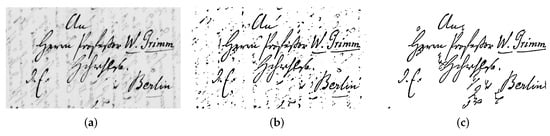 An
Herrn Professor W. Grimm
J. E.
Berlin
An
Herrn Professor W. Grimm
J. E.
Berlin
An
Herrn Professor W. Grimm
J. E.
Berlin
(a)
(b)
(c)